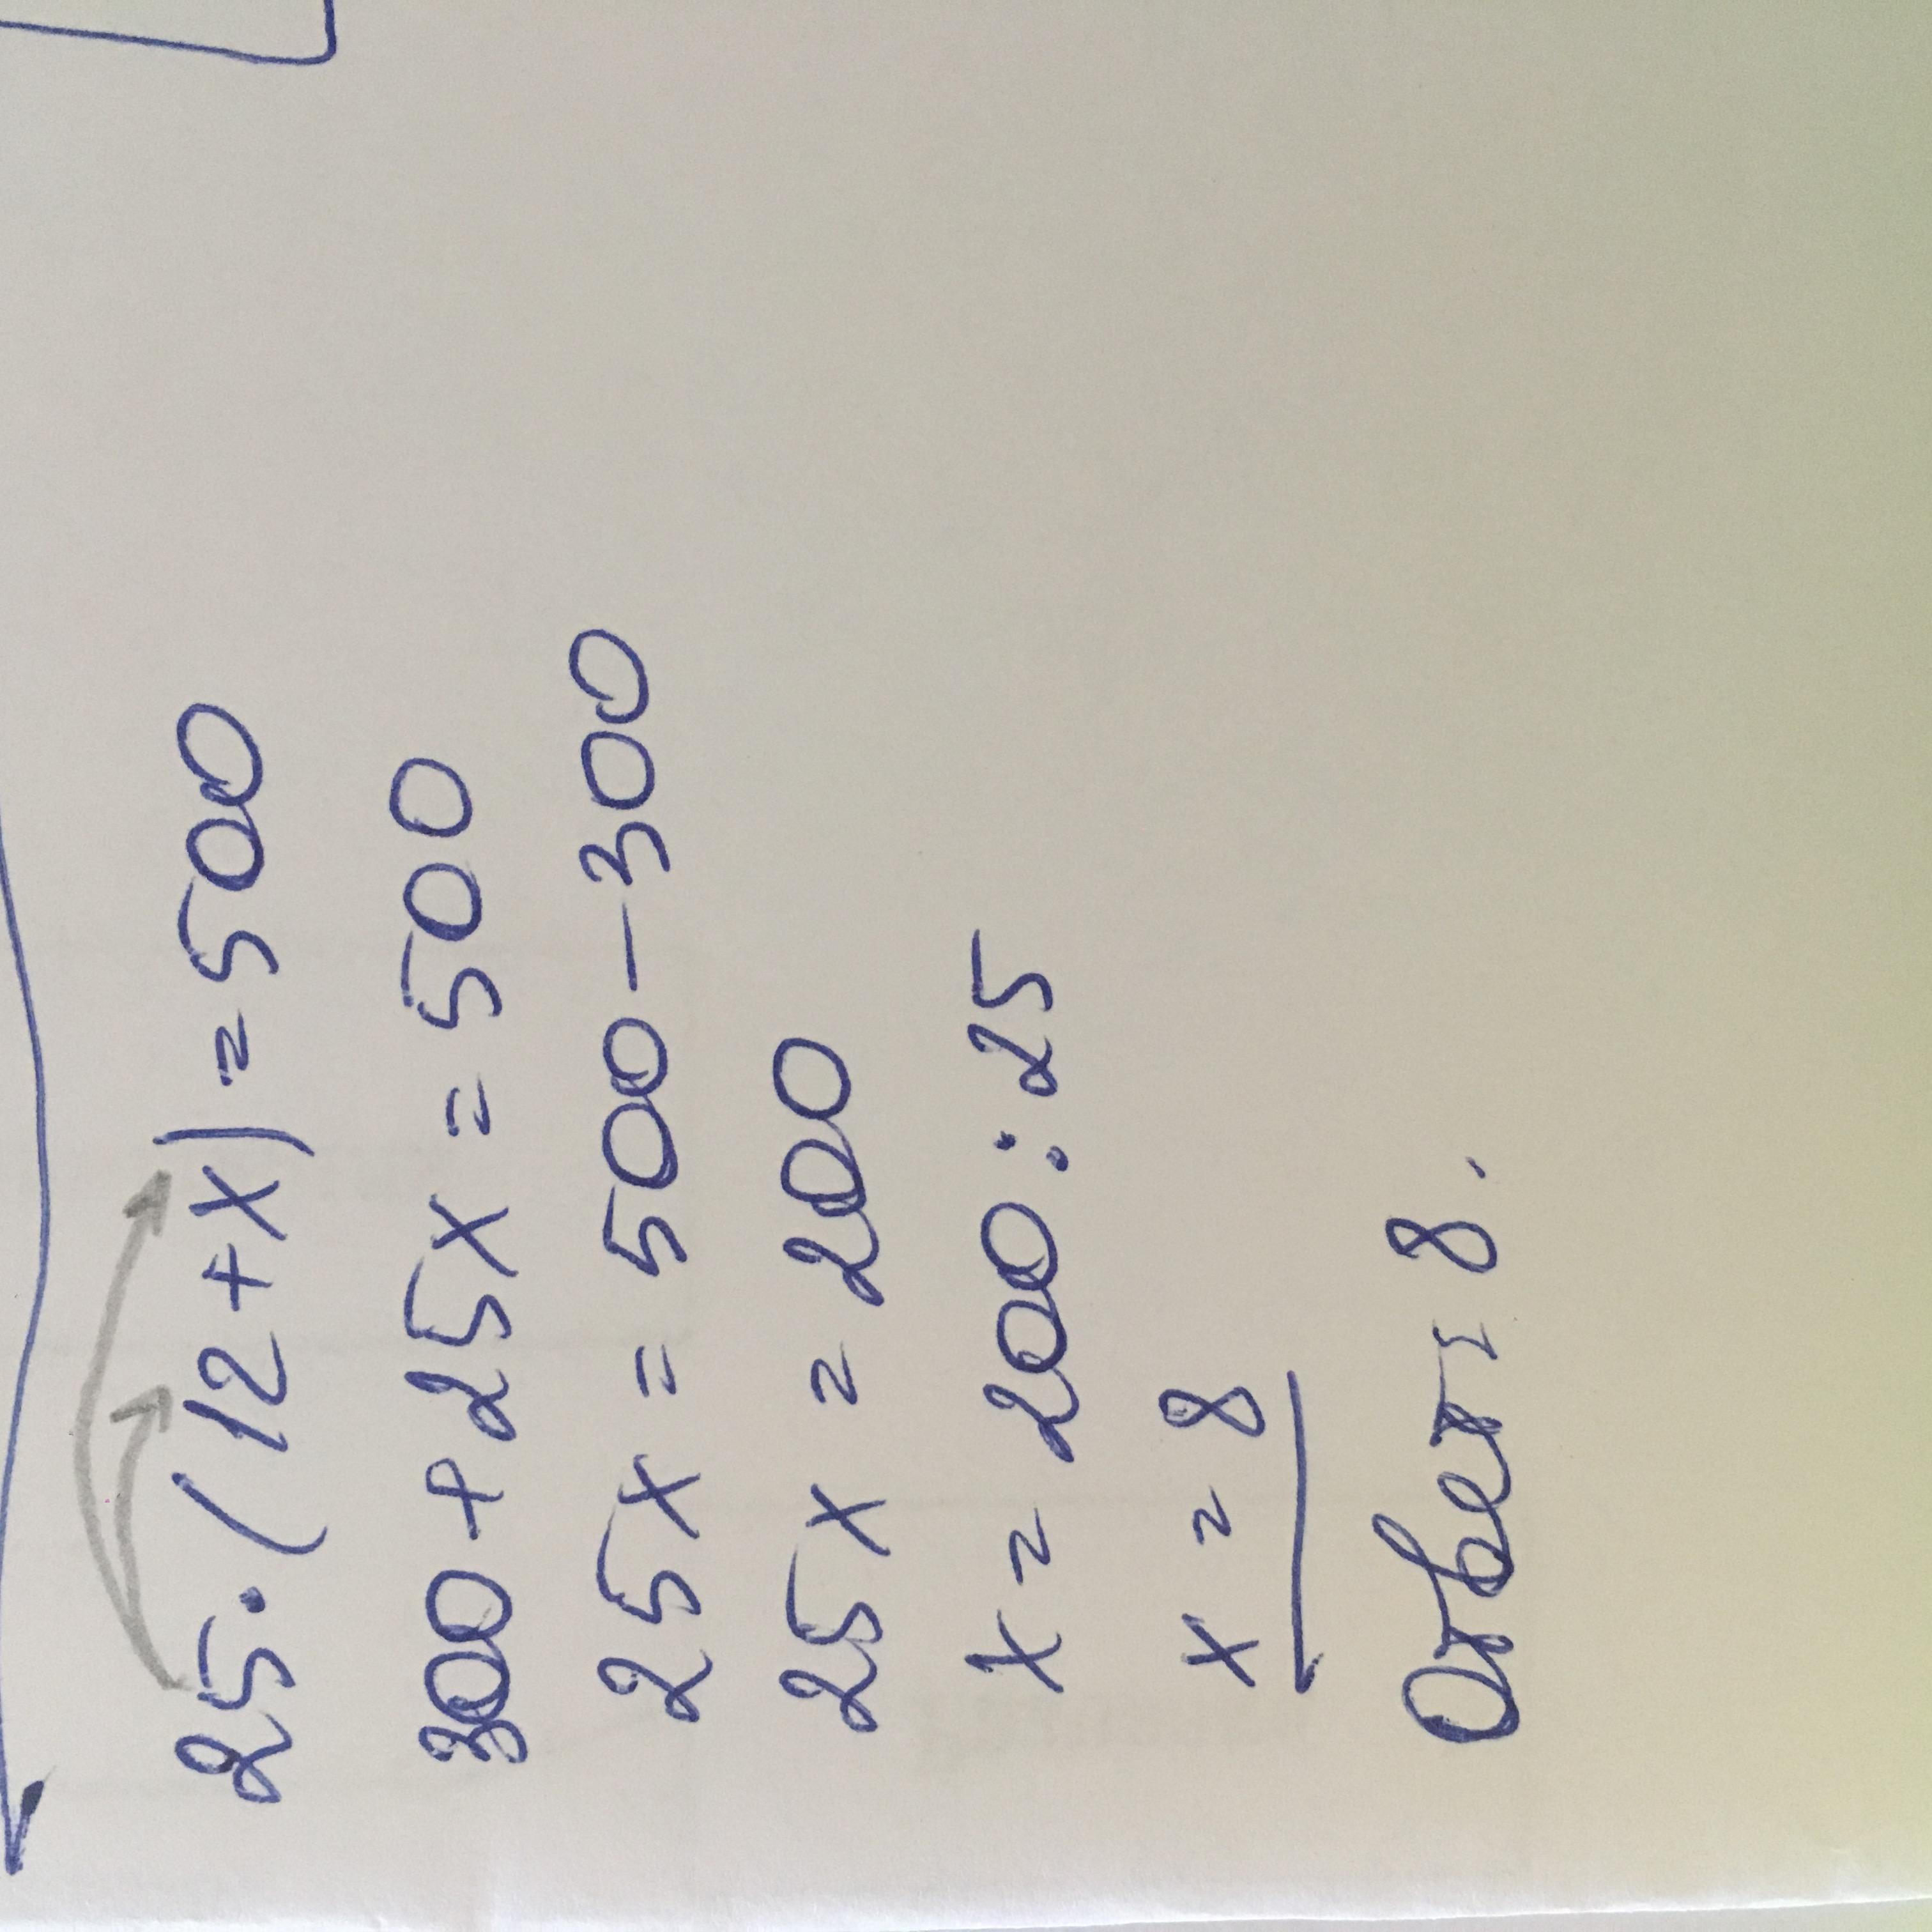 25·(12+x)=500
300+25x=500
25x=500-300
25x=200
x=200:25
x=8
Ответ: 8.